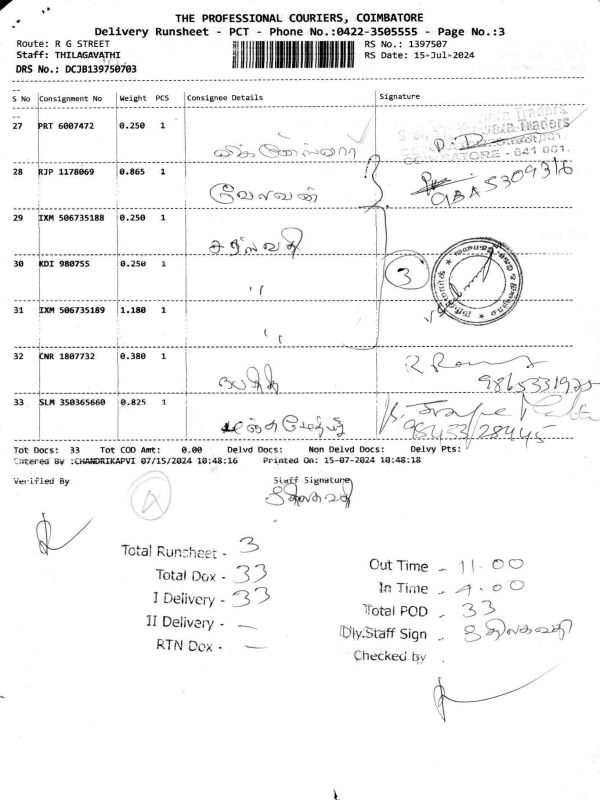 THE PROFESSIONAL COURIERS, COIMBATORE
Delivery Runsheet - PCT - Phone No.:0422-3505555 - Page No.:3
Route: R G STREET RS No.: 1397507
Staff: THILAGAVATHI RS Date: 15-Jul-2024
DRS No.: DCJB139750703
S No Consignment No Weight PCS Consignee Details Signature
27 PRT 6007472 0.250 1
COIMBATORE - 641 001.
28 RJP 1178069 0.865 1 வேலவன்
29 IXM 506735188 0.250 1
30 KDI 980755 0.250 1 " 3
31 IXM 506735189 1.180 1 "
32 CNR 1807732 0.380 1
33 SLM 350365660 0.825 1
Tot Docs: 33 Tot COD Amt: 0.00 Delvd Docs: Non Delvd Docs: Delvy Pts:
Entered By :CHANDRIKAPVI 07/15/2024 10:48:16 Printed On: 15-07-2024 10:48:18
Verified By Staff Signature
A திலகவதி
Total Runsheet - 3
Total Dox - 33
I Delivery - 33
II Delivery - —
RTN Dox - —
Out Time - 11.00
In Time - 4.00
Total POD - 33
Dly.Staff Sign - திலகவதி
Checked by